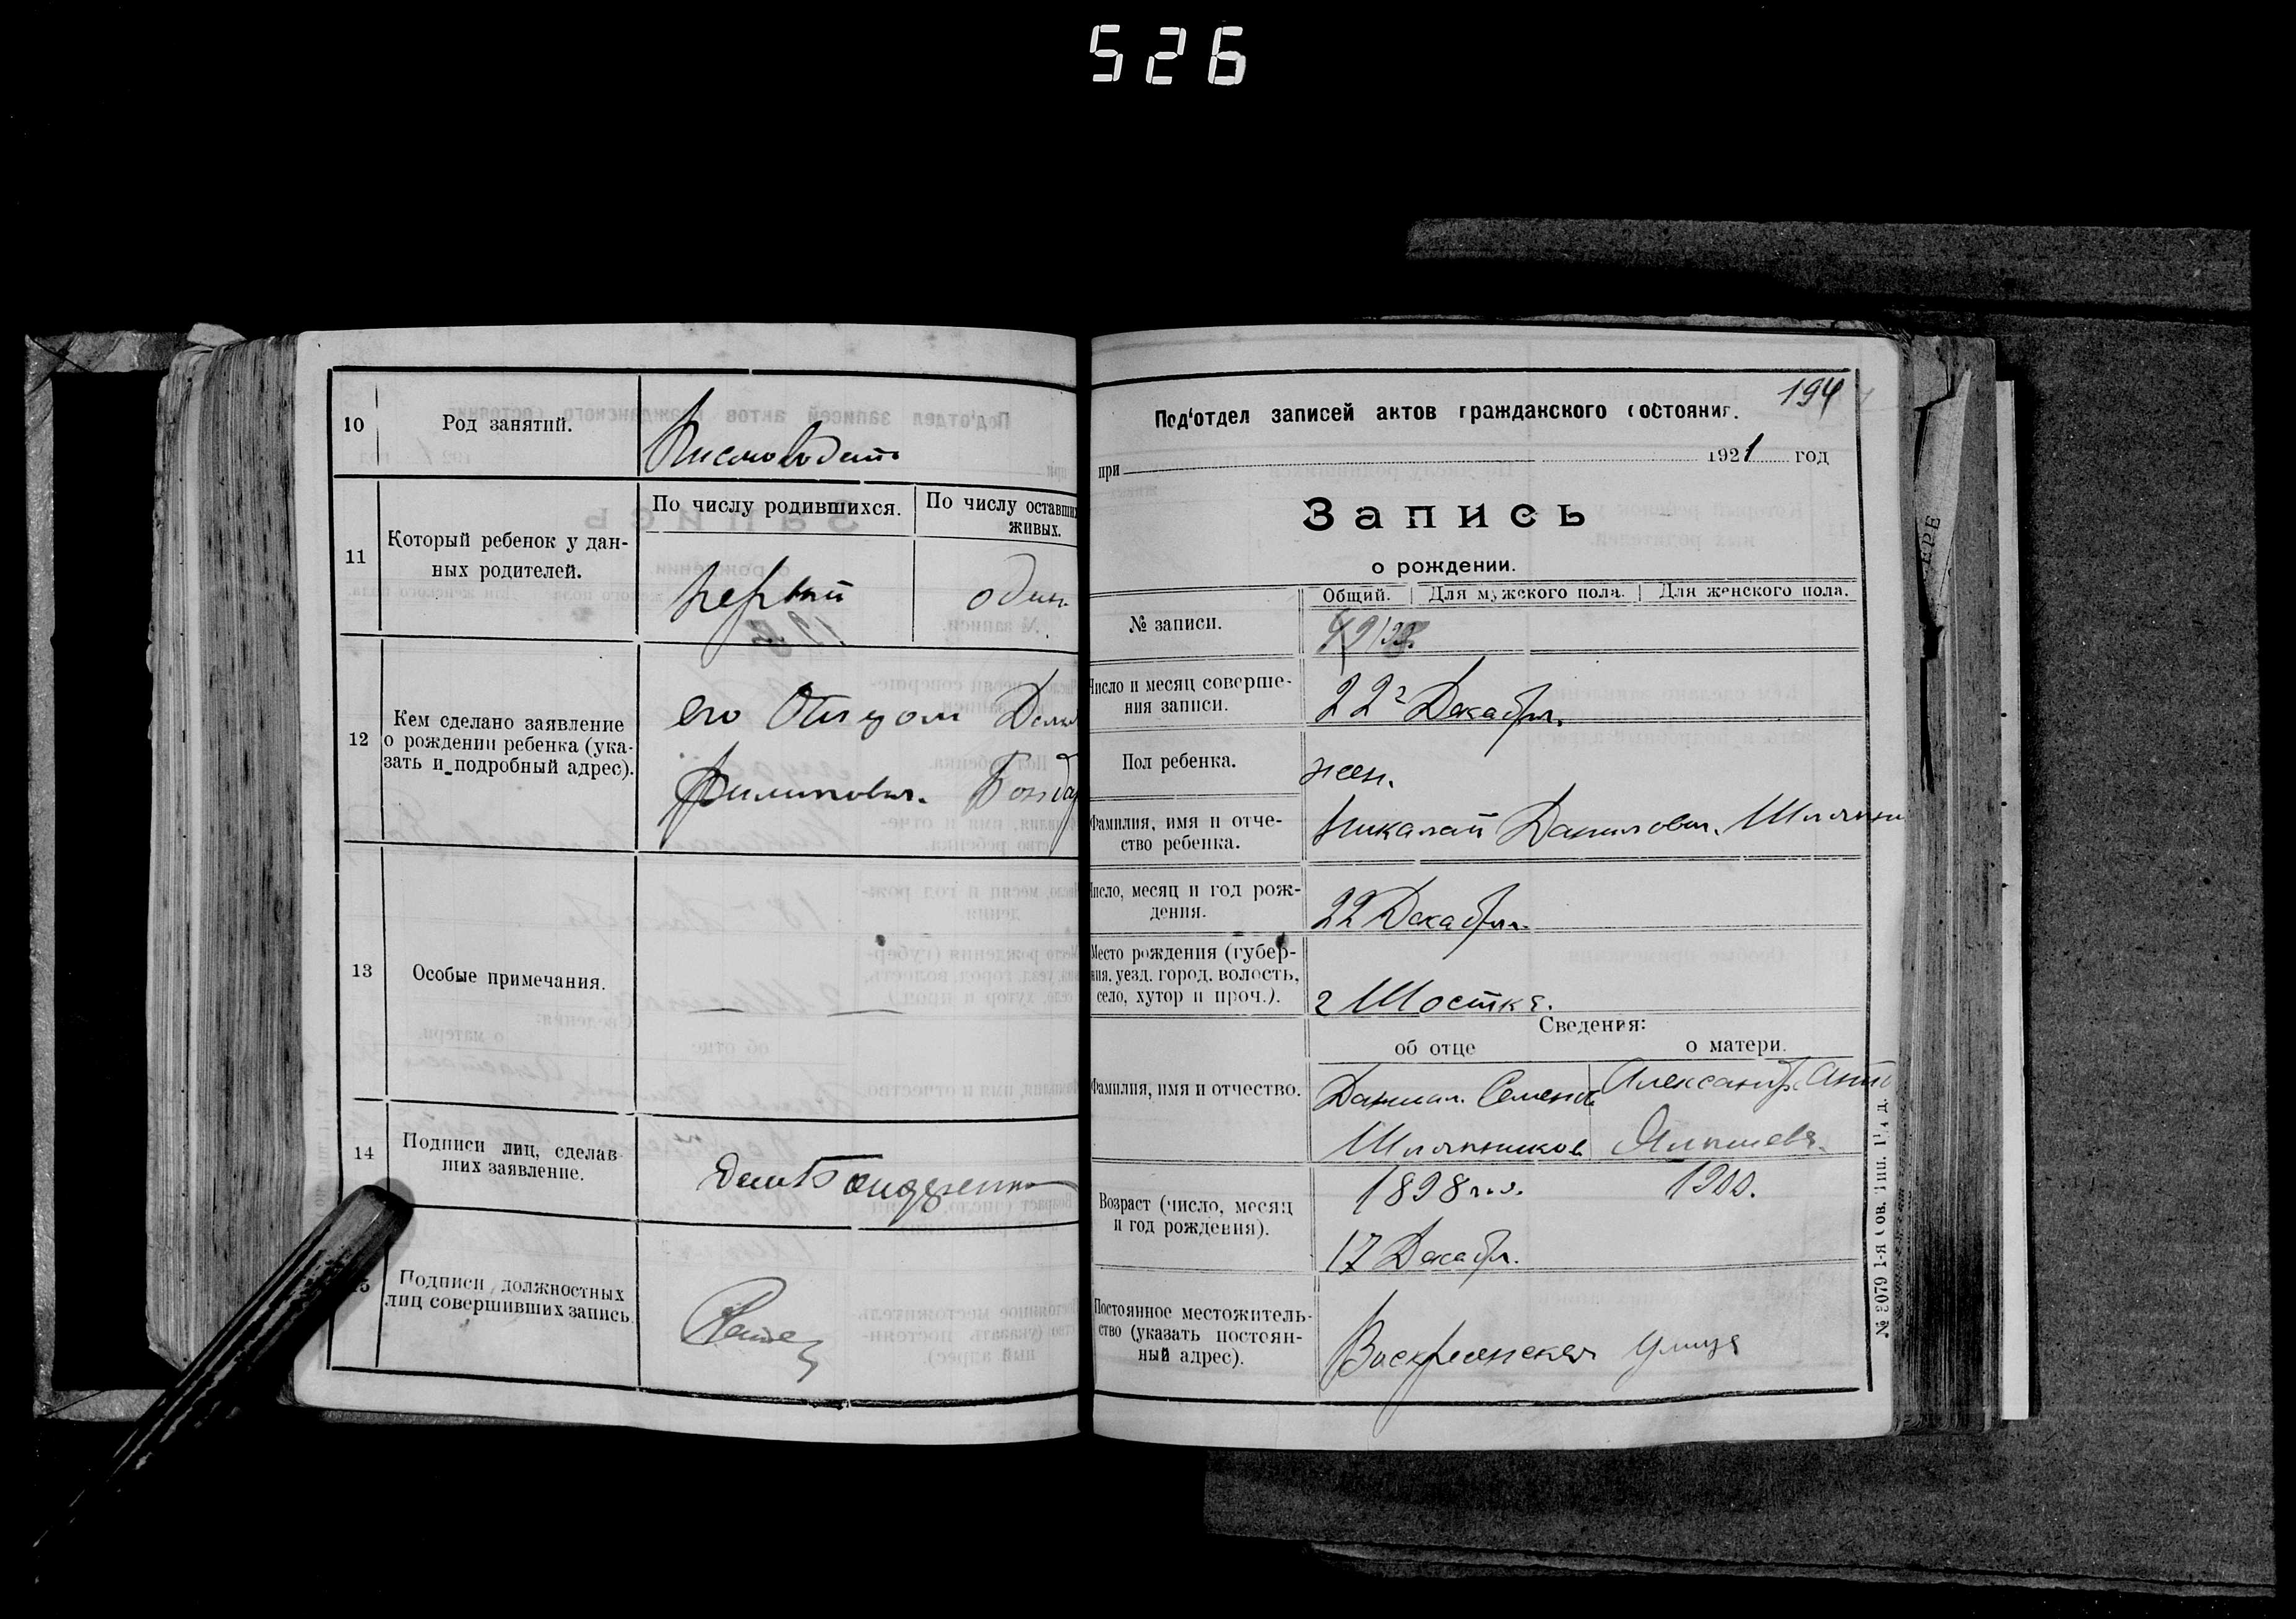 526
10
Род занятий.
Письмоводит.
11
Который ребенок у дан-
ных родителей.
По числу родившихся.
По числу оставших
живых.
первый
один
12
Кем сделано заявление
о рождении ребенка (ука-
зать и подробный адрес).
его Отцом
Филипович. Бонда
13
Особые примечания.
14
Подписи лиц, сделав-
ших заявление.
Бондаренко
15
Подписи должностных
лиц совершивших запись.
194
Под'отдел записей актов гражданского состояния.
при 1921 год
Запись
о рождении.
Общий. Для мужского пола. Для женского пола.
№ записи.
Число и месяц соверше-
ния записи.
22 Декабря.
Пол ребенка.
жен.
Фамилия, имя и отче-
ство ребенка.
Николай Данилович.
Число, месяц и год рож-
дения.
22 Декабря.
Место рождения (губер-
ния, уезд, город, волость,
село, хутор и проч.).
г Шостка.
Сведения:
об отце
о матери.
Фамилия, имя и отчество.
Данил. Семенов
Шляпников
Александр.
Возраст (число, месяц
и год рождения).
1898
1900.
17 Декабр.
Постоянное местожитель-
ство (указать постоян-
ный адрес).
Воскресенская улица